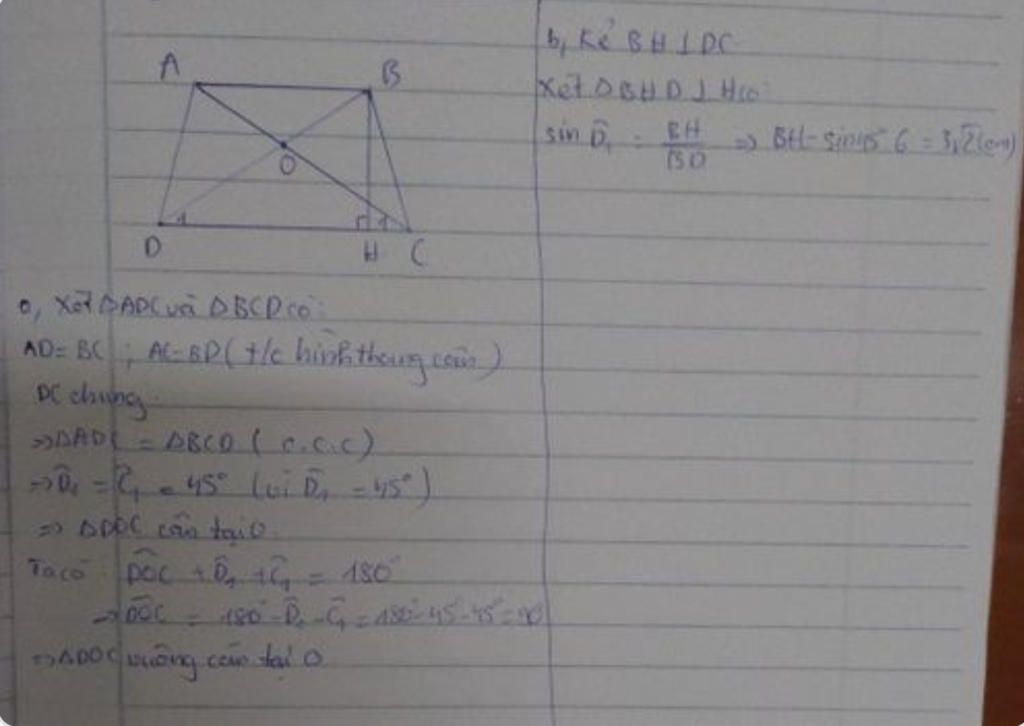 A B
O
D 1 H 1 C
a, Xét ΔADC và ΔBCD có:
AD = BC ; AC = BD ( t/c hình thang cân )
DC chung
=> ΔADC = ΔBCD ( c.c.c )
=> D̂₁ = Ĉ₁ = 45° (vì D̂₁ = 45°)
=> ΔDOC cân tại O
Ta có DOC + D̂₁ + Ĉ₁ = 180°
=> DOC = 180° - D̂₁ - Ĉ₁ = 180° - 45° - 45° = 90
=> ΔDOC vuông cân tại O
b, Kẻ BH ⊥ DC
Xét ΔBHD ⊥ H có:
sin D̂₁ = BH/BD => BH = sin45° 6 = 3√2 (cm)